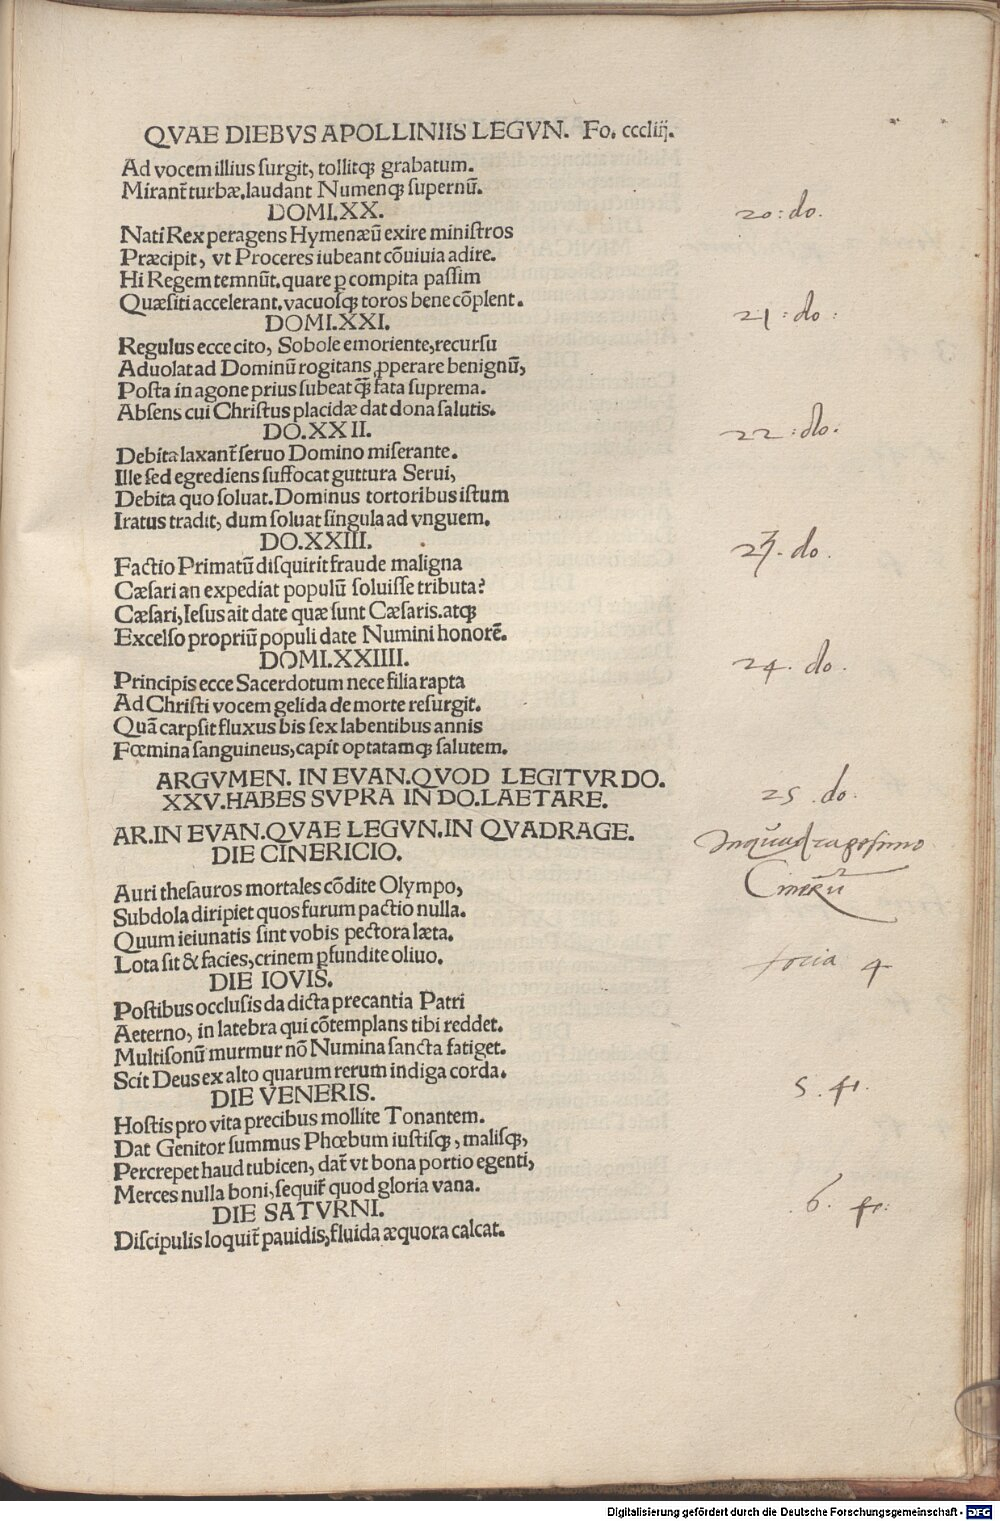 QVAE DIEBVS APOLLINIIS LEGVN. Fo. cccliij.
Ad vocem illius ſurgit, tollitqꝫ grabatum.
Mirant̃ turbæ, laudant Numenqꝫ ſupernũ.
DOMI.XX.
20: do.
Nati Rex peragens Hymenæũ exire miniſtros
Præcipit, vt Proceres iubeant cõuiuia adire.
Hi Regem temnũt. quare ꝑ compita paſſim
Quæſiti accelerant. vacuoſqꝫ toros bene cõplent.
DOMI.XXI.
21: do:
Regulus ecce cito, Sobole emoriente, recurſu
Aduolat ad Dominũ rogitans ꝓperare benignũ,
Poſta in agone prius ſubeat qꝫ̃ fata ſuprema.
Abſens cui Chriſtus placidæ dat dona ſalutis.
DO.XXII.
22: do.
Debita laxant̃ ſeruo Domino miſerante.
Ille ſed egrediens ſuffocat guttura Serui,
Debita quo ſoluat. Dominus tortoribus iſtum
Iratus tradit, dum ſoluat ſingula ad vnguem.
DO.XXIII.
23. do.
Factio Primatũ diſquirit fraude maligna
Cæſari an expediat populũ ſoluiſſe tributa?
Cæſari, Ieſus ait date quæ ſunt Cæſaris. atqꝫ
Excelſo propriũ populi date Numini honorẽ.
DOMI.XXIIII.
24. do.
Principis ecce Sacerdotum nece filia rapta
Ad Chriſti vocem gelida de morte reſurgit.
Quã carpſit fluxus bis ſex labentibus annis
Fœmina ſanguineus, capit optatamqꝫ ſalutem.
ARGVMEN. IN EVAN.QVOD LEGITVR DO.
XXV.HABES SVPRA IN DO.LAETARE.
25. do.
AR.IN EVAN.QVAE LEGVN.IN QVADRAGE.
DIE CINERICIO.
Inquadragesimo
Cinerũ
Auri theſauros mortales cõdite Olympo,
Subdola diripiet quos furum pactio nulla.
Quum ieiunatis ſint vobis pectora læta.
Lota ſit & facies, crinem ꝑfundite oliuo.
DIE IOVIS.
4
Poſtibus occluſis da dicta precantia Patri
Aeterno, in latebra qui cõtemplans tibi reddet.
Multiſonũ murmur nõ Numina ſancta fatiget.
Scit Deus ex alto quarum rerum indiga corda.
DIE VENERIS.
5. fe.
Hoſtis pro vita precibus mollite Tonantem.
Dat Genitor ſummus Phœbum iuſtiſqꝫ, maliſqꝫ,
Percrepet haud tubicen, dat̃ vt bona portio egenti,
Merces nulla boni, ſequit̃ quod gloria vana.
DIE SATVRNI.
6. fe:
Diſcipulis loquit̃ pauidis, fluida æquora calcat.
Digitalisierung gefördert durch die Deutsche Forschungsgemeinschaft - DFG